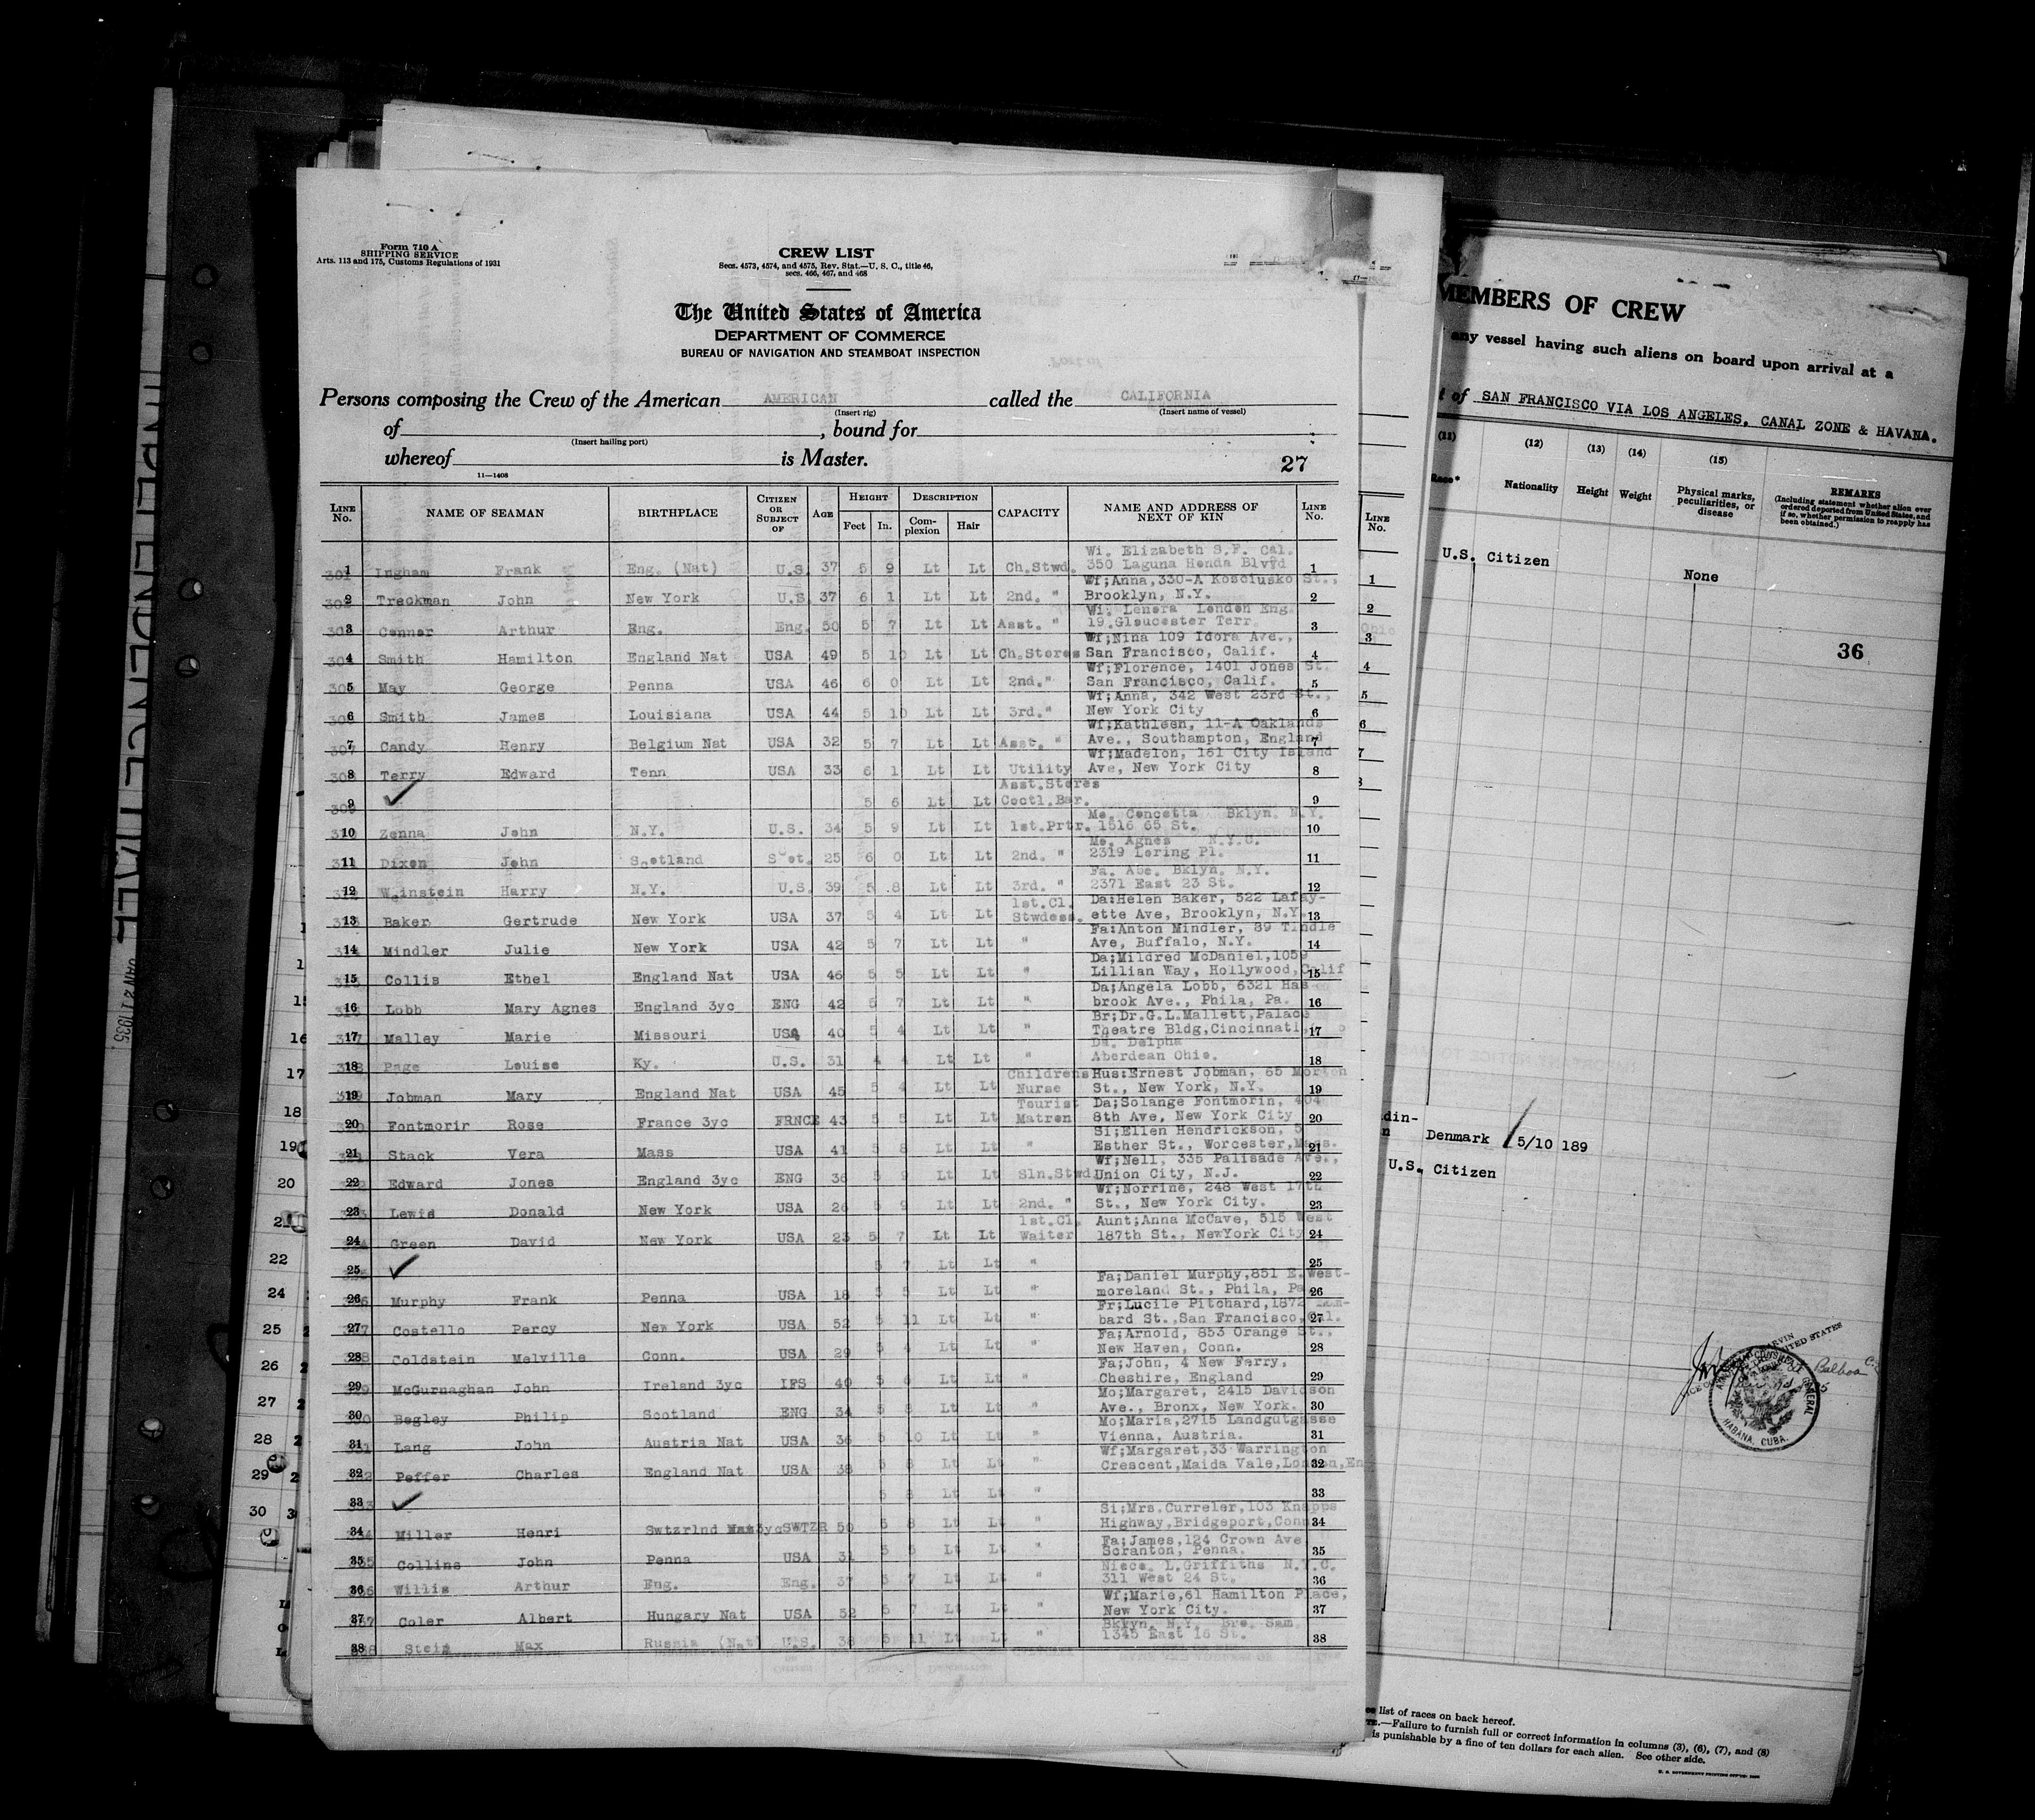 Form 710 A
SHIPPING SERVICE
Arts. 113 and 175, Customs Regulations of 1931
CREW LIST
Secs. 4573, 4574, and 4575, Rev. Stat.—U. S. C., title 46,
secs. 466, 467, and 468
The United States of America
DEPARTMENT OF COMMERCE
BUREAU OF NAVIGATION AND STEAMBOAT INSPECTION
Persons composing the Crew of the American AMERICAN called the CALIFORNIA
(Insert rig) (Insert name of vessel)
of , bound for
(Insert hailing port)
whereof is Master. 27
11—1408
LINE No. NAME OF SEAMAN BIRTHPLACE CITIZEN OR SUBJECT OF AGE HEIGHT Feet In. DESCRIPTION Complexion Hair CAPACITY NAME AND ADDRESS OF NEXT OF KIN LINE No.
Wi. Elizabeth S.F. Cal.
1 Ingham Frank Eng. (Nat) U.S. 37 5 9 Lt Lt Ch.Stwd. 350 Laguna Honda Blvd 1
Wf;Anna,330-A Kosciusko St.,
2 Treckman John New York U.S. 37 6 1 Lt Lt 2nd. " Brooklyn, N.Y. 2
Wi. Lenora London Eng.
3 Connor Arthur Eng. Eng. 50 5 7 Lt Lt Asst. " 19.Gloucester Terr. 3
Wf;Nina 109 Idora Ave.,
4 Smith Hamilton England Nat USA 49 5 10 Lt Lt Ch.Stores San Francisco, Calif. 4
Wf;Florence, 1401 Jones St.
5 May George Penna USA 46 6 0 Lt Lt 2nd." San Francisco, Calif. 5
Wf;Anna, 342 West 23rd St.,
6 Smith James Louisiana USA 44 5 10 Lt Lt 3rd." New York City 6
Wf;Kathleen, 11-A Oaklands
7 Candy Henry Belgium Nat USA 32 5 7 Lt Lt Asst. " Ave., Southampton, England 7
Wf;Madelon, 161 City Island
8 Terry Edward Tenn USA 33 6 1 Lt Lt Utility Ave, New York City 8
Asst.Stores
9 5 6 Lt Lt Coctl.Bar. 9
Mo. Concetta Bklyn. N.Y.
10 Zenna John N.Y. U.S. 34 5 9 Lt Lt 1st.Prtr. 1516 65 St. 10
Mo. Agnes N.Y.C.
11 Dixon John Scotland Scot. 25 6 0 Lt Lt 2nd. " 2319 Loring Pl. 11
Fa. Abe. Bklyn. N.Y.
12 Weinstein Harry N.Y. U.S. 39 5 8 Lt Lt 3rd. " 2371 East 23 St. 12
1st.Cl. Da:Helen Baker, 522 Lafay-
13 Baker Gertrude New York USA 37 5 4 Lt Lt Stwdess. ette Ave, Brooklyn, N.Y. 13
Fa:Anton Mindler, 89 Tindle
14 Mindler Julie New York USA 42 5 7 Lt Lt " Ave, Buffalo, N.Y. 14
Da;Mildred McDaniel,1059
15 Collis Ethel England Nat USA 46 5 5 Lt Lt " Lillian Way, Hollywood,Calif 15
Da;Angela Lobb, 6321 Has
16 Lobb Mary Agnes England 3yc ENG 42 5 7 Lt Lt " brook Ave., Phila, Pa. 16
Br;Dr.G.L.Mallett,Palace
17 Malley Marie Missouri USA 40 5 4 Lt Lt " Theatre Bldg,Cincinnati, o 17
Da. Delpha
18 Page Louise Ky. U.S. 31 4 4 Lt Lt " Aberdean Ohio. 18
Childrens Hus:Ernest Jobman, 65 Morton
19 Jobman Mary England Nat USA 45 5 4 Lt Lt Nurse St., New York, N.Y. 19
Tourist Da;Solange Fontmorin, 404
20 Fontmorir Rose France 3yc FRNCE 43 5 5 Lt Lt Matron 8th Ave, New York City 20
Si;Ellen Hendrickson, 5
21 Stack Vera Mass USA 41 5 8 Lt Lt " Esther St., Worcester,Mass. 21
Wf;Nell, 335 Palisade Ave.,
22 Edward Jones England 3yc ENG 36 5 9 Lt Lt Sln.Stwd Union City, N.J. 22
Wf;Norrine, 248 West 17th
23 Lewis Donald New York USA 26 5 9 Lt Lt 2nd. " St., New York City. 23
1st.Cl. Aunt;Anna McCave, 515 West
24 Green David New York USA 23 5 7 Lt Lt Waiter 187th St., NewYork City 24
25 5 7 Lt Lt " 25
Fa;Daniel Murphy,851 E.West-
26 Murphy Frank Penna USA 18 5 5 Lt Lt " moreland St., Phila, Pa 26
Fr;Lucile Pitchard,1872 Lom-
27 Costello Percy New York USA 52 5 11 Lt Lt " bard St.,San Francisco,Cal. 27
Fa;Arnold, 853 Orange St.,
28 Coldstein Melville Conn. USA 29 5 4 Lt Lt " New Haven, Conn. 28
Fa;John, 4 New Ferry,
29 McGurnaghan John Ireland 3yc IFS 40 5 6 Lt Lt " Cheshire, England 29
Mo;Margaret, 2415 Davidson
30 Begley Philip Scotland ENG 34 5 8 Lt Lt " Ave., Bronx, New York. 30
Mo;Maria,2715 Landgutgasse
31 Lang John Austria Nat USA 36 5 10 Lt Lt " Vienna, Austria. 31
Wf;Margaret,33 Warrington
32 Peffer Charles England Nat USA 38 5 8 Lt Lt " Crescent,Maida Vale,London,En 32
33 5 8 Lt Lt " 33
Si;Mrs.Curreler,103 Knapps
34 Miller Henri Swtzrlnd 3yc SWTZR 50 5 8 Lt Lt " Highway,Bridgeport,Conn 34
Fa;James,124 Crown Ave
35 Collins John Penna USA 31 5 5 Lt Lt " Scranton, Penna. 35
Niece. L.Griffiths N.Y.C.
36 Willis Arthur Eng. Eng. 37 5 7 Lt Lt " 311 West 24 St. 36
Wf;Marie,61 Hamilton Place,
37 Coler Albert Hungary Nat USA 52 5 7 Lt Lt " New York City. 37
Bklyn. N.Y. Bro. Sam
38 Stein Max Russia (Nat) U.S. 38 5 11 Lt Lt " 1345 East 16 St. 38
MEMBERS OF CREW
any vessel having such aliens on board upon arrival at a
of SAN FRANCISCO VIA LOS ANGELES, CANAL ZONE & HAVANA.
(11) (12) (13) (14) (15)
Race* Nationality Height Weight Physical marks, peculiarities, or disease REMARKS
(Including statement whether alien ever ordered deported from United States, and if so, whether permission to reapply has been obtained.)
U.S. Citizen None
36
din-
n Denmark 5/10 189
U.S. Citizen
HABANA, CUBA.
Balboa
list of races on back hereof.
—Failure to furnish full or correct information in columns (3), (6), (7), and (8)
is punishable by a fine of ten dollars for each alien. See other side.
JAN 21 1935